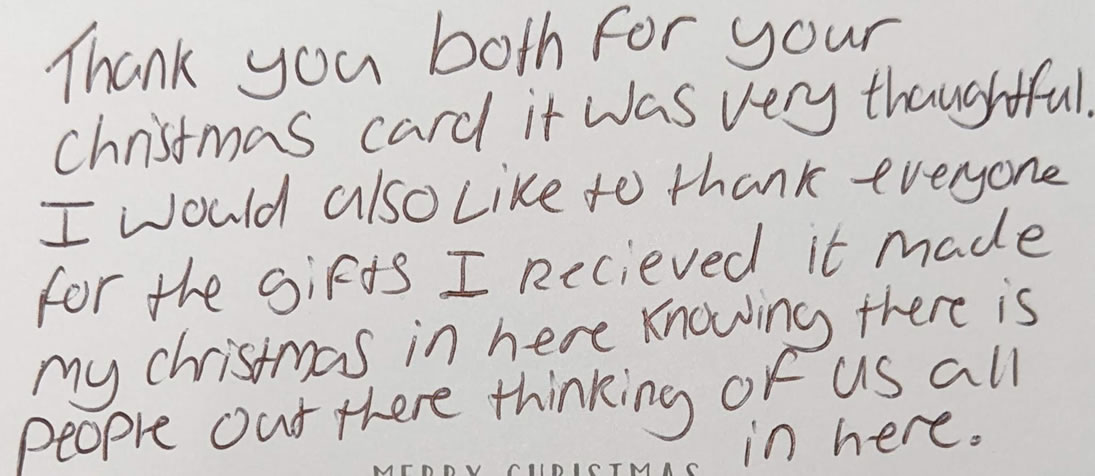 Thank you both for your
christmas card it was very thoughtful.
I would also Like to thank everyone
for the gifts I Recieved it made
my christmas in here knowing there is
people out there thinking of us all
in here.
MERRY CHRISTMAS